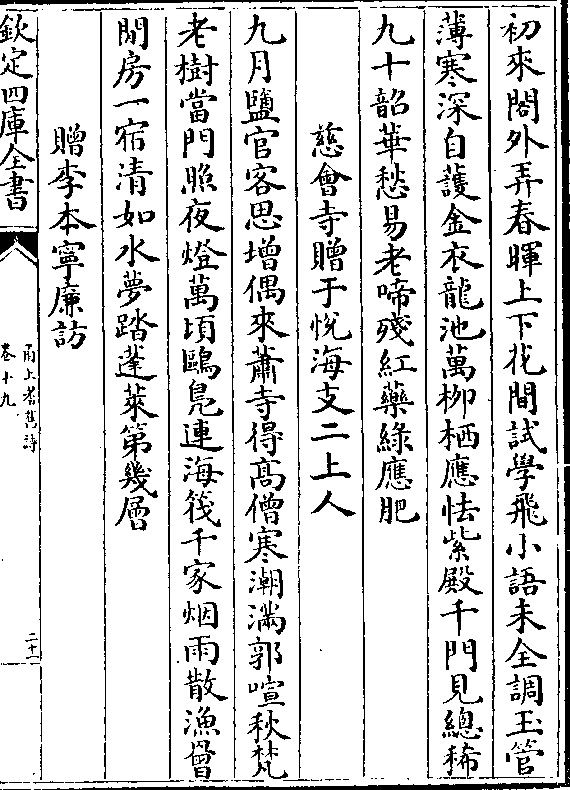 初來閣外弄春暉上下花間試學飛小語未全調玉管
薄寒深自護金衣龍池萬柳栖應怯紫殿千門見總稀
九十韶華愁易老啼殘紅藥綠應肥
慈會寺贈于悅海支二上人
九月鹽官客思增偶來蕭寺得髙僧寒潮滿郭喧秋梵
老樹當門照夜燈萬頃鷗鳬連海筏千家烟雨散漁罾
閒房一宿清如水夢踏蓬萊第幾層
贈李本寧廉訪
欽定四庫全書
甬上耆舊詩
卷十九
二十一